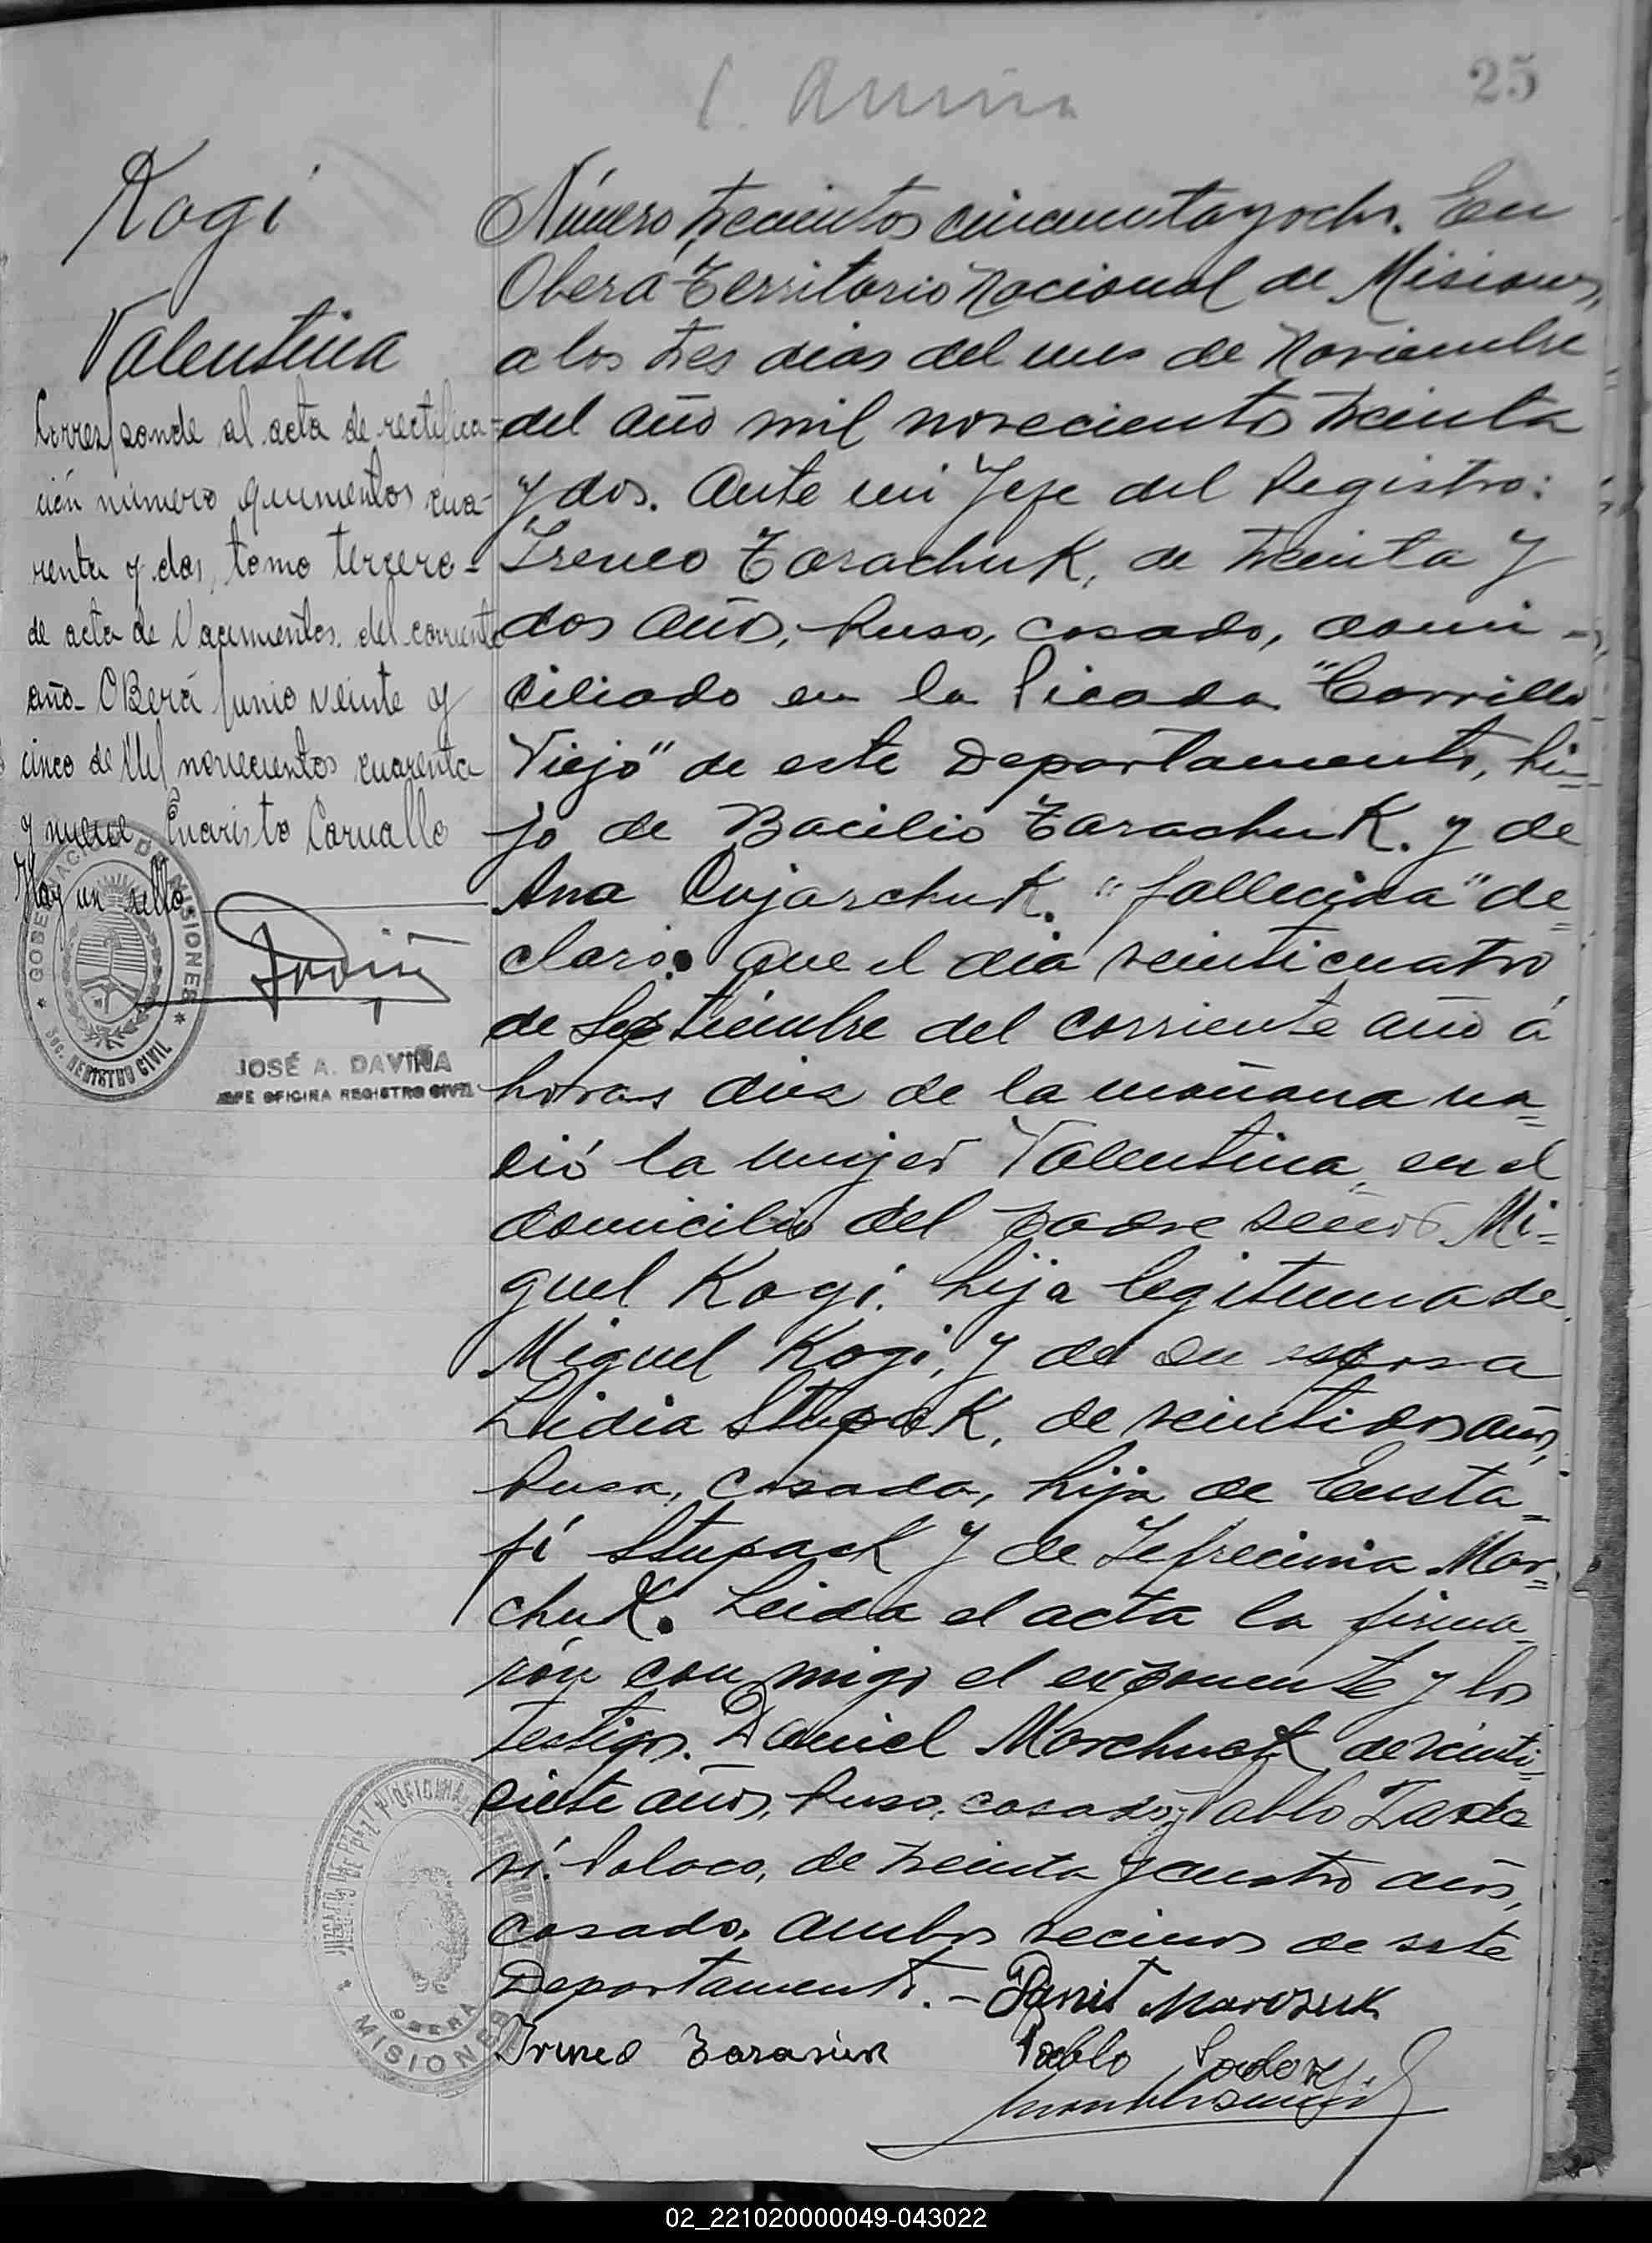 25
Kogi
Valentina
Corresponde al acta de rectifica-
ción número quinientos cua-
renta y dos, tomo tercero-
de acta de Nacimientos del corriente
año- OBerá junio veinte y
cinco de Mil novecientos cuarenta
y nueve Evaristo Carvallo
Hay un sello.
GOBERNACION DE MISIONES
REGISTRO CIVIL
JOSÉ A. DAVIÑA
JEFE OFICINA REGISTRO CIVIL
Número trecientos cincuenta y ocho. En
Oberá Territorio Nacional de Misiones,
a los tres dias del mes de Noviembre
del año mil novecientos treinta
y dos. Ante mi Jefe del Registro:
Ireneo Tarachuk, de treinta y
dos años, Ruso, casado, domi-
ciliado en la Picada "Barrillo
Viejo" de este Departamento, hi-
jo de Bacilio Tarachuk. y de
Ana Cujarchuk. "fallecida" de=
claró: que el dia veinticuatro
de Septiembre del corriente año á
horas diez de la mañana na=
ció la mujer Valentina, en el
domicilio del padre señor Mi=
guel Kogi. hija legitima de
Miguel Kogi, y de su esposa
Lidia Stupak, de veintidos años,
Rusa, casada, hija de Eusta=
fi Stupack y de Mar=
chuk. Leida el acta la firma=
rón con migo el exponente y los
testigos. Daniel Marchuck de veinti=
siete años, Ruso, casado, y Pablo
Polaco, de treinta y cuatro años,
casado, ambos vecinos de este
Departamento. - Danit Marczuk
Irineo Tarasiuk Pablo
OBERA
MISIONES
02_221020000049-043022